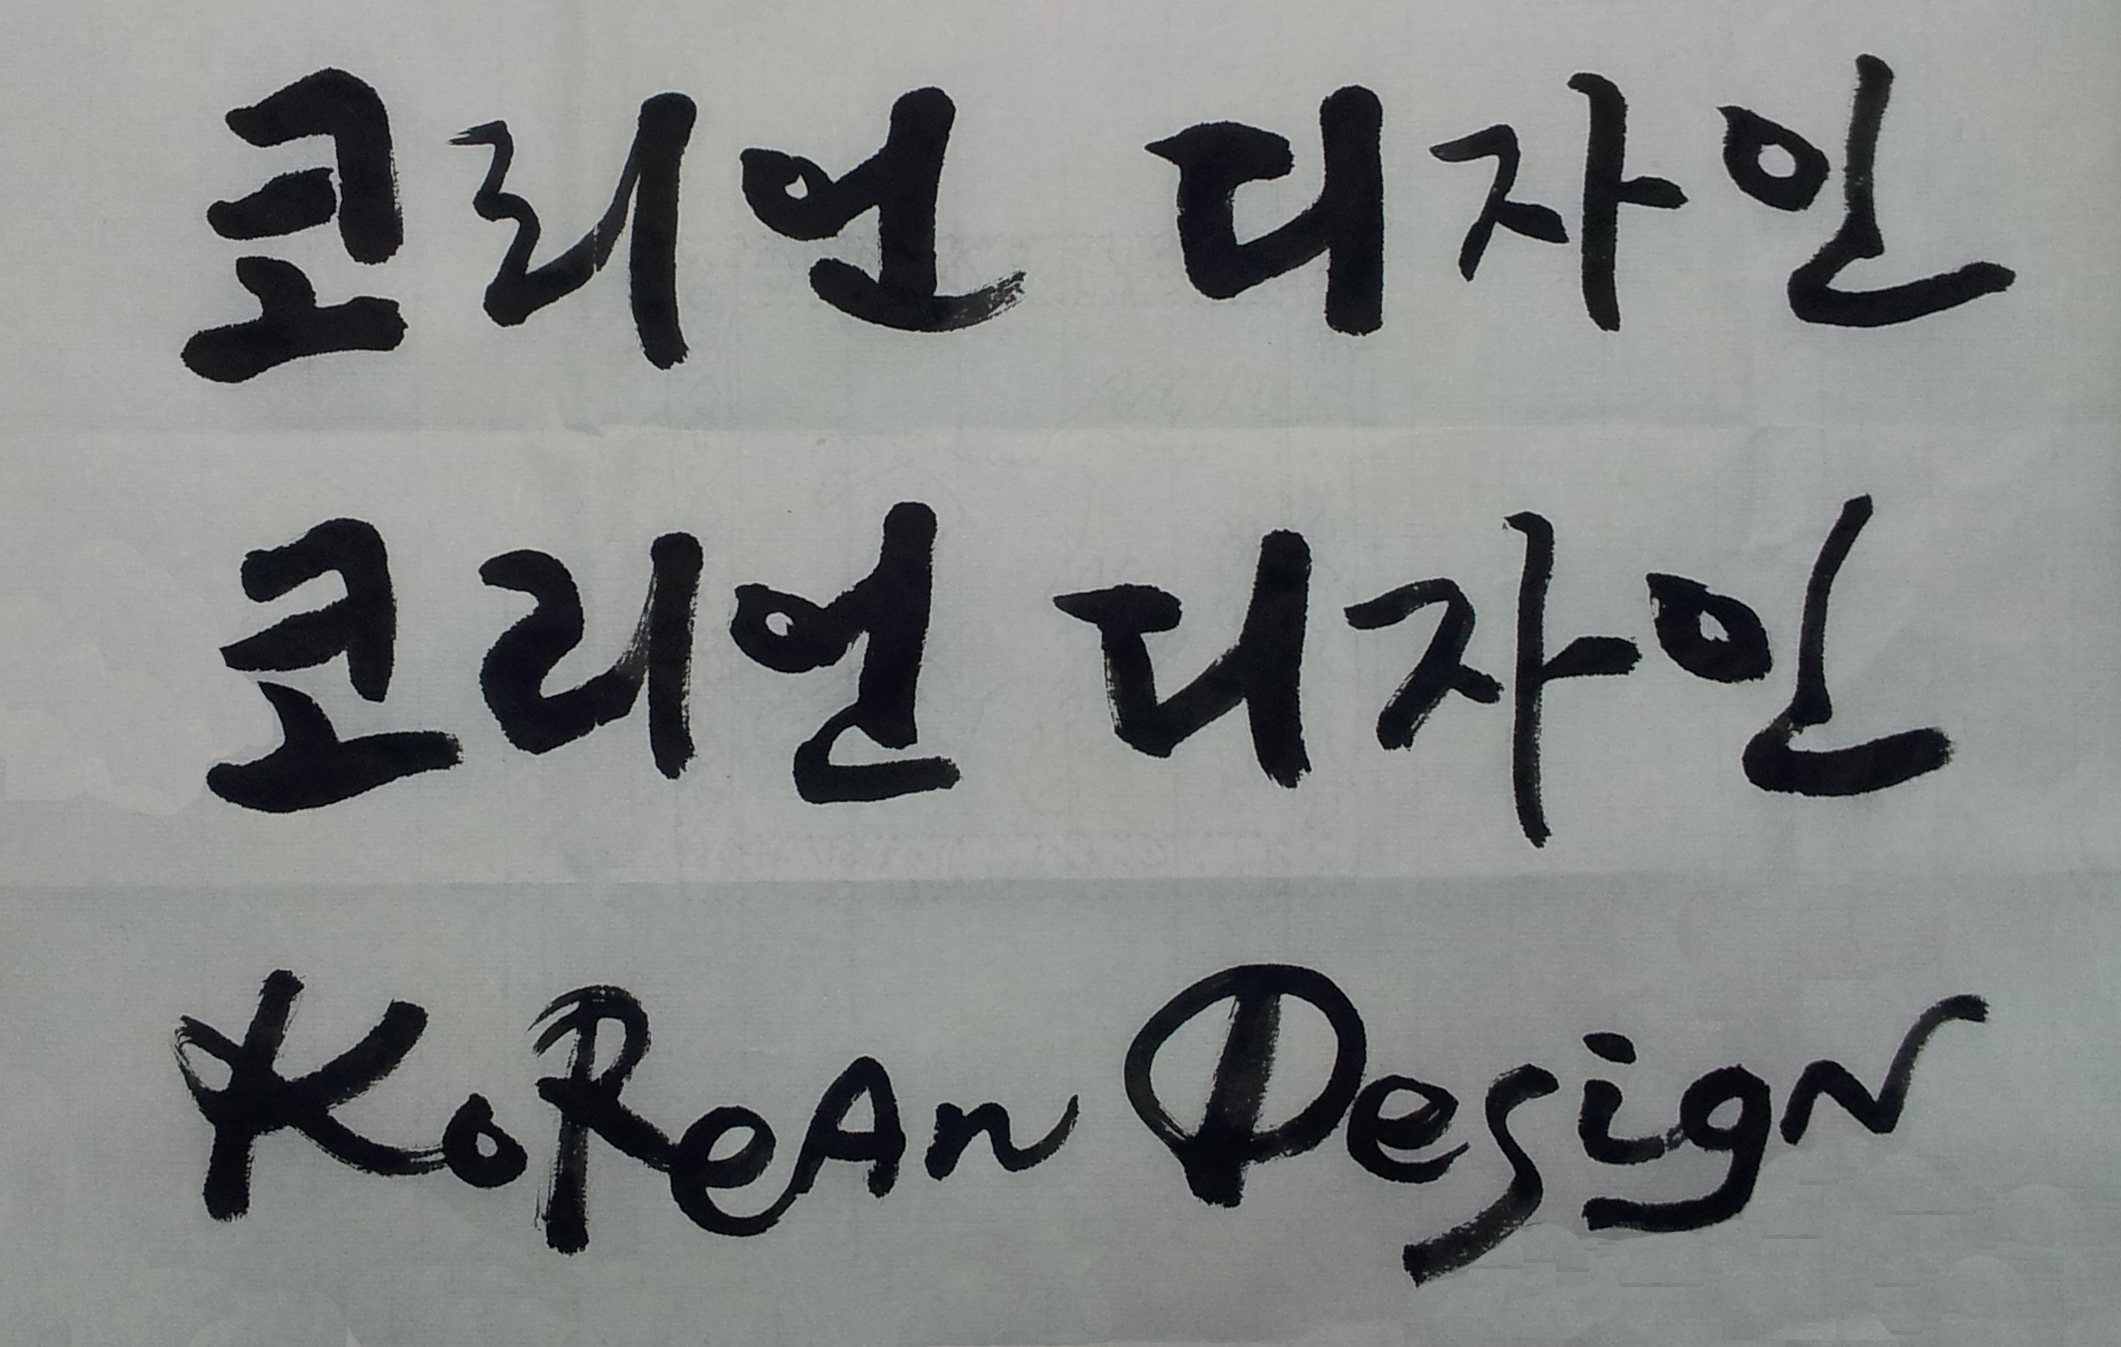 코리언 디자인
코리언 디자인
KoReAn Design